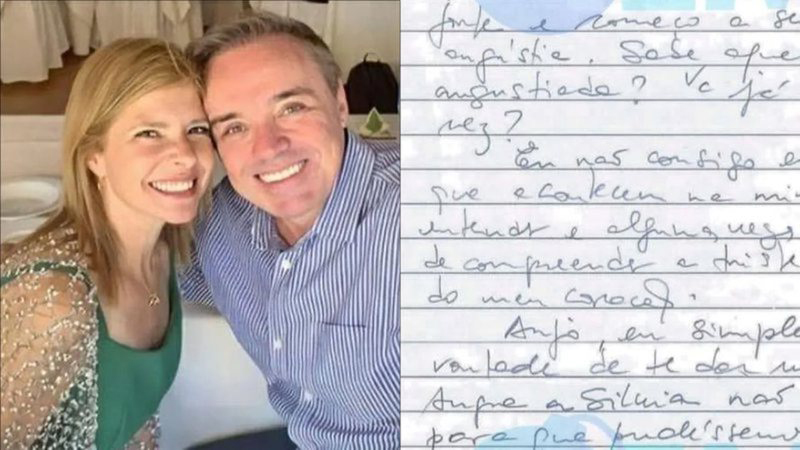 forte e começo a se
angústia. Sabe aque
angustiada? Vc já
vez?
Eu não consigo e
que acontecem na mi
entender e algumas vezes
de compreender a triste
do meu coração.
Anjo, eu simple
vontade de te dar u
a Silvia não
para que pudéssemo